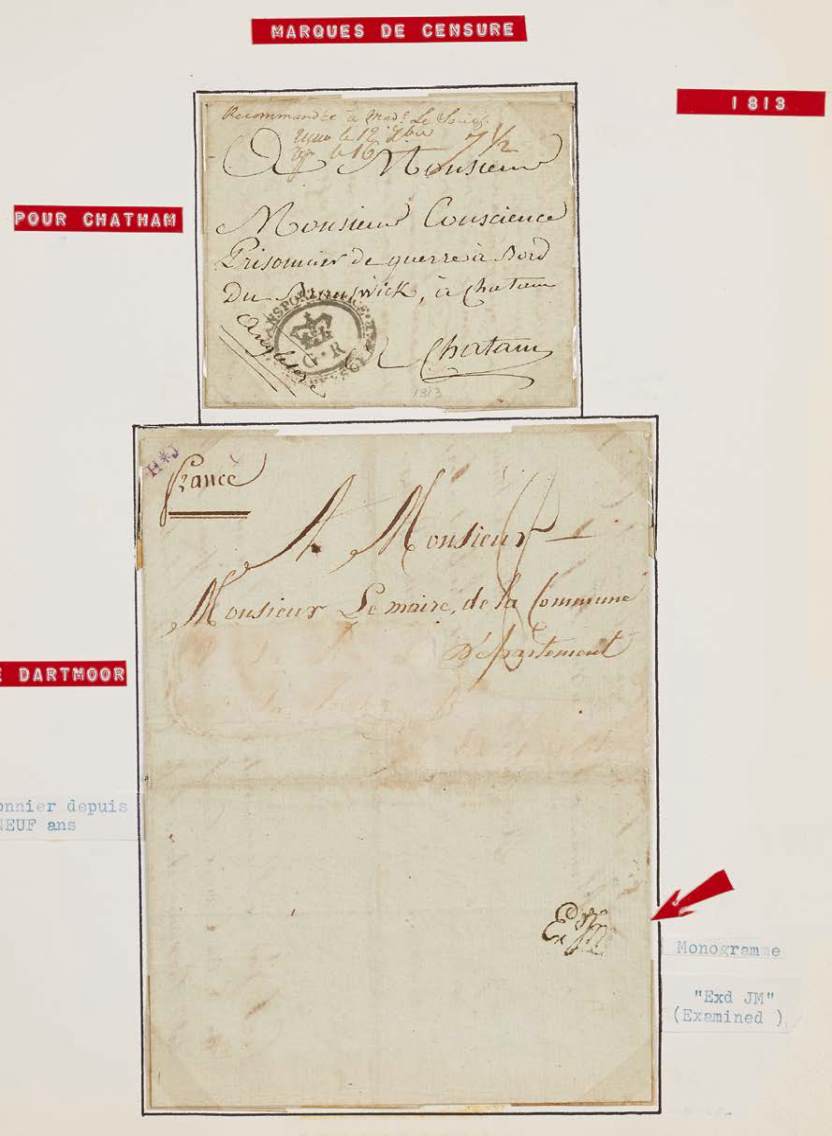 MARQUES DE CENSURE
1813
Recommandée à Mad.e Le
le 12
le 16
7 1/2
A Monsieur
POUR CHATHAM
Monsieur Conscience
Prisonnier de guerre à Bord
Du Brunswick, à Chatam
ANSPORT OFFICE
G.R
Angleterre
Chatam
1813
H*J
France
A Monsieur
Monsieur Le maire, de la Commune
Département
E DARTMOOR
onnier depuis
NEUF ans
Monogramme
"Exd JM"
(Examined )